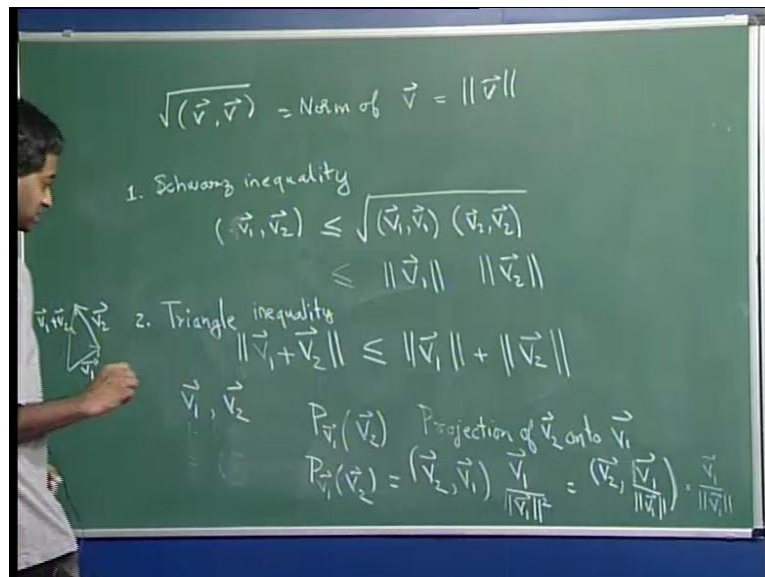 √(v⃗, v⃗) = Norm of v⃗ = ||v⃗||
1. Schwarz inequality
(v⃗₁, v⃗₂) ≤ √(v⃗₁, v⃗₁) (v⃗₂, v⃗₂)
≤ ||v⃗₁|| ||v⃗₂||
2. Triangle inequality
v⃗₁+v⃗₂ v⃗₂
v⃗₁
||v⃗₁ + v⃗₂|| ≤ ||v⃗₁|| + ||v⃗₂||
v⃗₁, v⃗₂ P_v⃗₁(v⃗₂) Projection of v⃗₂ onto v⃗₁
P_v⃗₁(v⃗₂) = (v⃗₂, v⃗₁) v⃗₁/||v⃗₁||² = (v⃗₂, v⃗₁/||v⃗₁||) · v⃗₁/||v⃗₁||